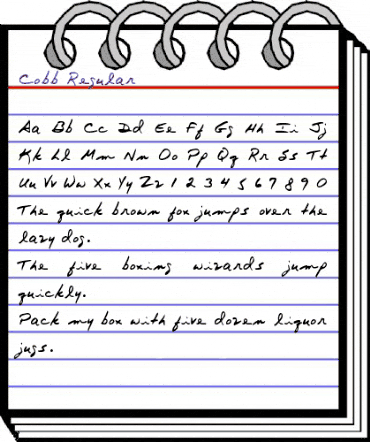 Cobb Regular
Aa Bb Cc Dd Ee Ff Gg Hh Ii Jj
Kk Ll Mm Nn Oo Pp Qq Rr Ss Tt
Uu Vv Ww Xx Yy Zz 1 2 3 4 5 6 7 8 9 0
The quick brown fox jumps over the
lazy dog.
The five boxing wizards jump
quickly.
Pack my box with five dozen liquor
jugs.